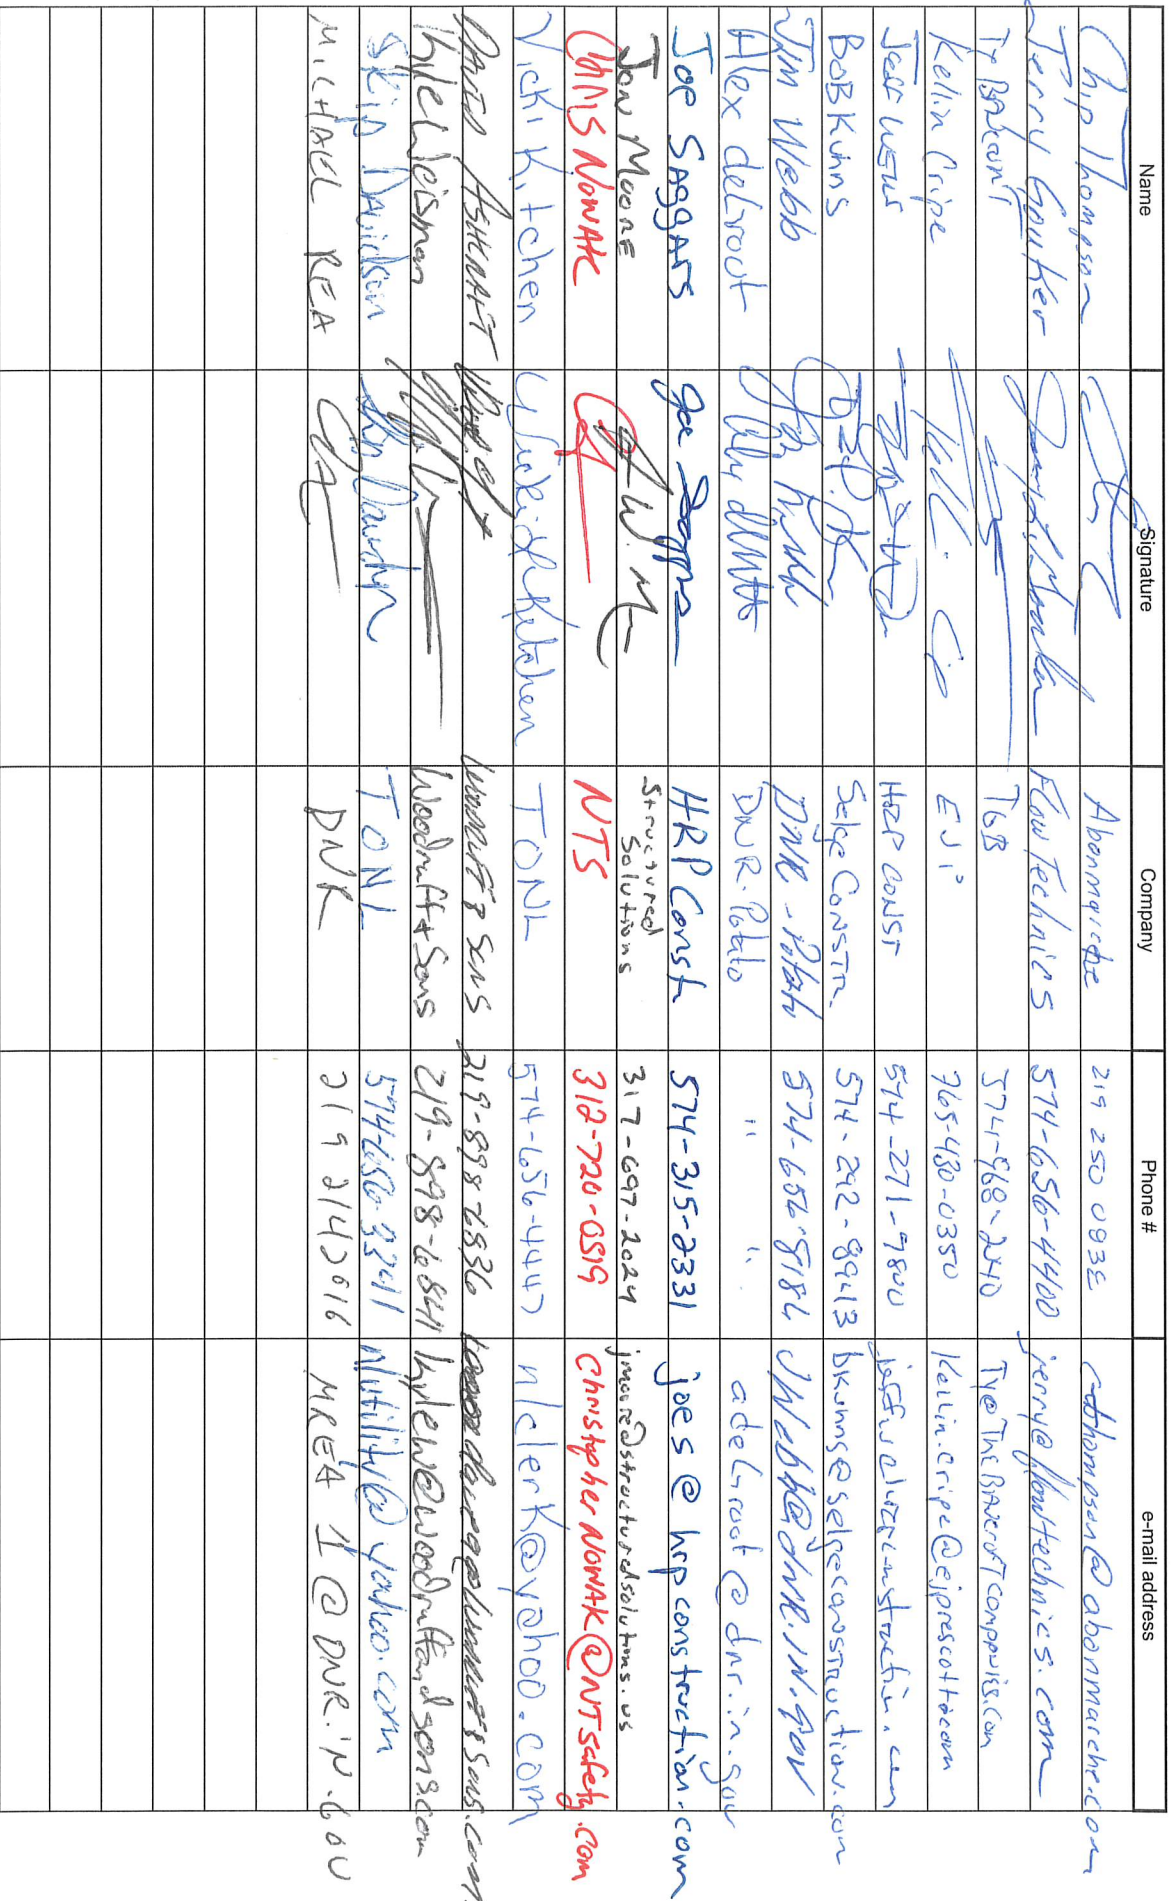 Name Signature Company Phone # e-mail address
Chip Thompson Abonmarche 219 250 0835 cthompson@abonmarche.com
Terry Souther Flow Technics 574-656-4400 jerry@flowtechnics.com
Ty Bancroft TGB 574-968-2440 Ty@TheBancroftCompanies.com
Kellin Cripe EJP 765-430-0350 Kellin.cripe@ejprescott.com
Jeff Weur HRP CONST 574-271-9800
BOB Kuhns Selge Constr. 574-292-8943 bkuhns@selgeconstruction.com
Jim Webb DNR-Potato 574-656-8186 JWebb@dnr.IN.gov
Alex delroot DNR-Potato " " adelroot@dnr.in.gov
Joe SAggArs Joe Saggars HRP Const 574-315-2331 joes@hrpconstruction.com
Jon Moore Structured Solutions 317-697-2024 jmoore@structuredsolutions.us
Chris Nowak NTS 312-720-0519 christopherNOWAK@NTsafety.com
Vicki Kitchen Vicki Kitchen TONL 574-656-4447 nlclerk@yahoo.com
David Ashcraft Woodruff & Sons 219-898-6836
Kyle Weisman Woodruff & Sons 219-898-6841 kylew@woodruffandsons.com
Skip Davidson Skip Davidson TONL 574-656-3341 nlutility@yahoo.com
MICHAEL REA DNR 219 214 2016 MREA 1@DNR.IN.GOV